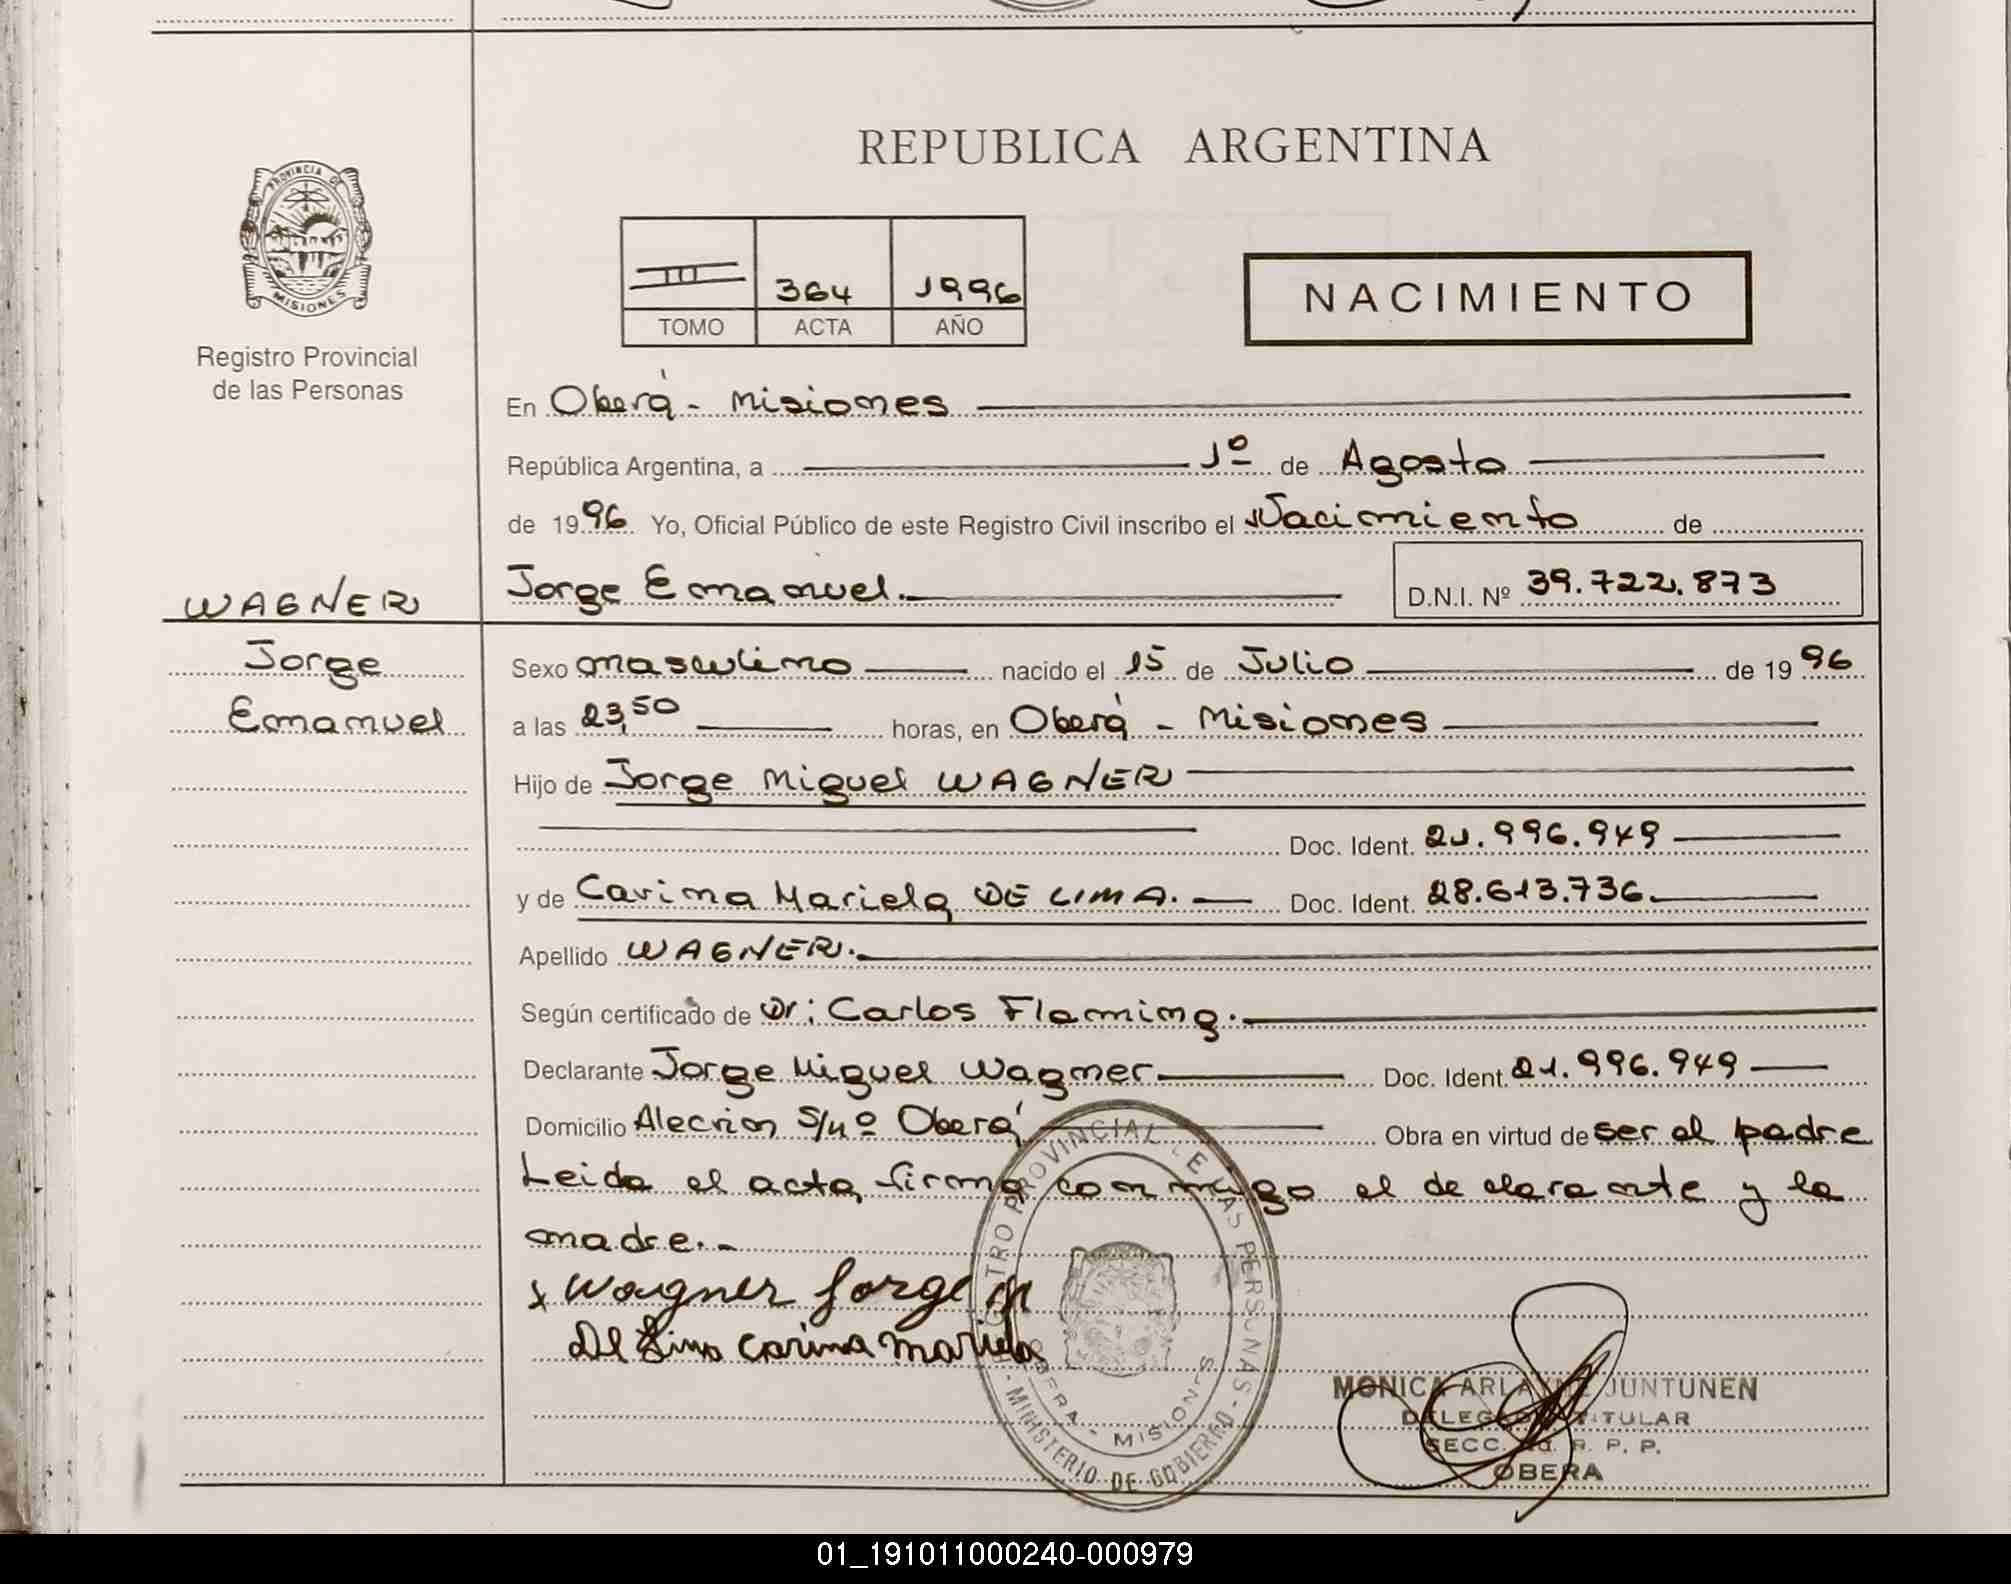 REPUBLICA ARGENTINA
PROVINCIA DE
MISIONES
Registro Provincial
de las Personas
III 364 1996
TOMO ACTA AÑO
NACIMIENTO
En Oberá - Misiones
República Argentina, a 1º de Agosto
de 1996 Yo, Oficial Público de este Registro Civil inscribo el Nacimiento de
Jorge Emanuel. D.N.I. Nº 39.722.873
WAGNER
Jorge
Emanuel
Sexo masculino nacido el 15 de Julio de 1996
a las 23,50 horas, en Oberá - Misiones
Hijo de Jorge Miguel WAGNER
Doc. Ident. 21.996.949
y de Carina Mariela DE LIMA. Doc. Ident. 28.613.736.
Apellido WAGNER.
Según certificado de Dr: Carlos Flaming.
Declarante Jorge Miguel Wagner Doc. Ident. 21.996.949
Domicilio Alecrin S/nº Oberá Obra en virtud de ser el padre
Leida el acta, firma conmigo el declarante y la
madre.-
x Wagner Jorge M
De Lima Carina Mariela
REGISTRO PROVINCIAL DE LAS PERSONAS - MINISTERIO DE GOBIERNO -
OBERA - MISIONES
MONICA ARLA JUNTUNEN
DELEGADA TITULAR
SECC. R. P. P.
OBERA
01_191011000240-000979